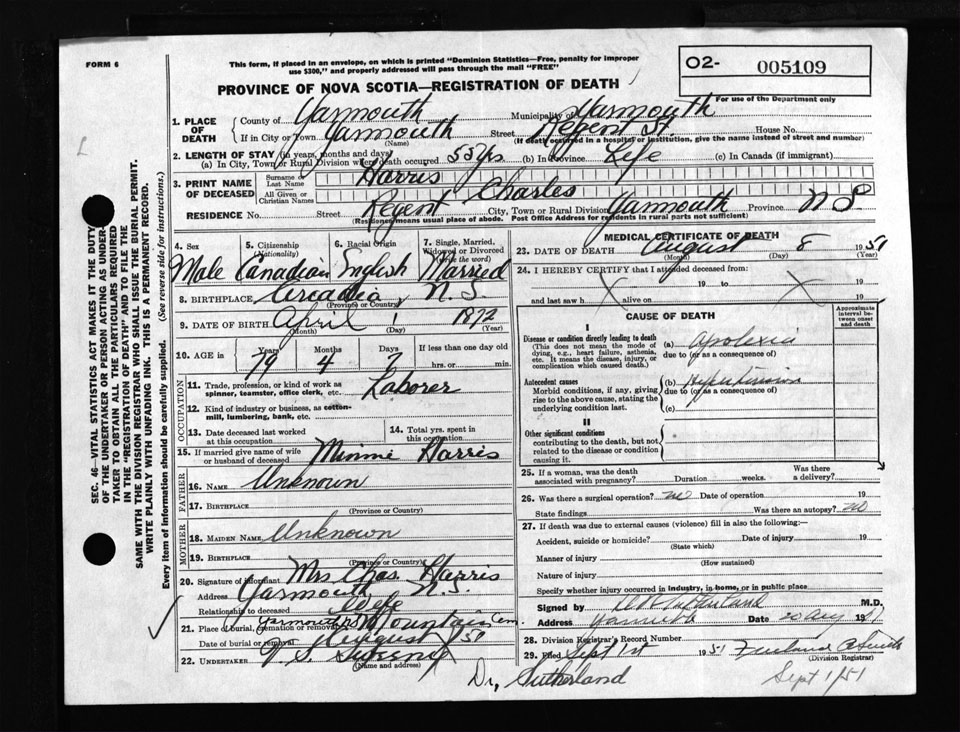 FORM 6
This form, if placed in an envelope, on which is printed "Dominion Statistics—Free, penalty for improper
use $300," and properly addressed will pass through the mail "FREE"
O2- 005109
For use of the Department only
PROVINCE OF NOVA SCOTIA—REGISTRATION OF DEATH
1. PLACE OF DEATH
County of Yarmouth Municipality of Yarmouth
If in City or Town Yarmouth Street Regent St House No.
(Name) (If death occurred in a hospital or institution, give the name instead of street and number)
2. LENGTH OF STAY (in years, months and days)
(a) In City, Town or Rural Division where death occurred 55 yrs (b) In Province Life (c) In Canada (if immigrant)
3. PRINT NAME OF DECEASED
Surname or Last Name Harris
All Given or Christian Names Charles
RESIDENCE No. Street Regent City, Town or Rural Division Yarmouth Province N S
(Residence means usual place of abode. Post Office Address for residents in rural parts not sufficient)
4. Sex 5. Citizenship (Nationality) 6. Racial Origin 7. Single, Married, Widowed or Divorced (write the word)
Male Canadian English Married
8. BIRTHPLACE Arcadia, N.S.
(Province or Country)
9. DATE OF BIRTH April 1 1872
(Month) (Day) (Year)
10. AGE in Years Months Days If less than one day old
79 4 7 hrs. or min.
OCCUPATION
11. Trade, profession, or kind of work as spinner, teamster, office clerk, etc. Laborer
12. Kind of industry or business, as cotton-mill, lumbering, bank, etc.
13. Date deceased last worked at this occupation
14. Total yrs. spent in this occupation
15. If married give name of wife or husband of deceased Minnie Harris
FATHER
16. NAME Unknown
17. BIRTHPLACE
(Province or Country)
MOTHER
18. MAIDEN NAME Unknown
19. BIRTHPLACE
(Province or Country)
20. Signature of informant Mrs Chas. Harris
Address Yarmouth N.S.
Relationship to deceased Wife
21. Place of burial, cremation or removal Yarmouth Mountain Cem
Date of burial or removal August 51
22. UNDERTAKER S. Sweeny
(Name and address)
MEDICAL CERTIFICATE OF DEATH
23. DATE OF DEATH August 8 1951
(Month) (Day) (Year)
24. I HEREBY CERTIFY that I attended deceased from:
19 to 19
and last saw h alive on 19
CAUSE OF DEATH
Approximate interval between onset and death
I
Disease or condition directly leading to death (a) Apolexia
(This does not mean the mode of dying, e.g., heart failure, asthenia, etc. It means the disease, injury, or complication which caused death.)
due to (or as a consequence of)
Antecedent causes (b) Hypertension
Morbid conditions, if any, giving rise to the above cause, stating the underlying condition last.
due to (or as a consequence of)
(c)
II
Other significant conditions
contributing to the death, but not related to the disease or condition causing it.
25. If a woman, was the death associated with pregnancy? Duration weeks. Was there a delivery?
26. Was there a surgical operation? no Date of operation 19
State findings Was there an autopsy? no
27. If death was due to external causes (violence) fill in also the following:—
Accident, suicide or homicide? Date of injury 19
(State which)
Manner of injury
(How sustained)
Nature of injury
Specify whether injury occurred in industry, in home, or in public place
Signed by Sutherland M.D.
Address Yarmouth Date 20 Aug 1951
28. Division Registrar's Record Number
29. Filed Sept 1st 1951
(Division Registrar)
Dr. Sutherland
Sept 1/51
SEC. 46—VITAL STATISTICS ACT MAKES IT THE DUTY
OF THE UNDERTAKER OR PERSON ACTING AS UNDER-
TAKER TO OBTAIN ALL THE PARTICULARS REQUIRED
IN THE "REGISTRATION OF DEATH" AND TO FILE THE
SAME WITH THE DIVISION REGISTRAR WHO SHALL ISSUE THE BURIAL PERMIT.
WRITE PLAINLY WITH UNFADING INK. THIS IS A PERMANENT RECORD.
Every item of information should be carefully supplied. (See reverse side for instructions.)